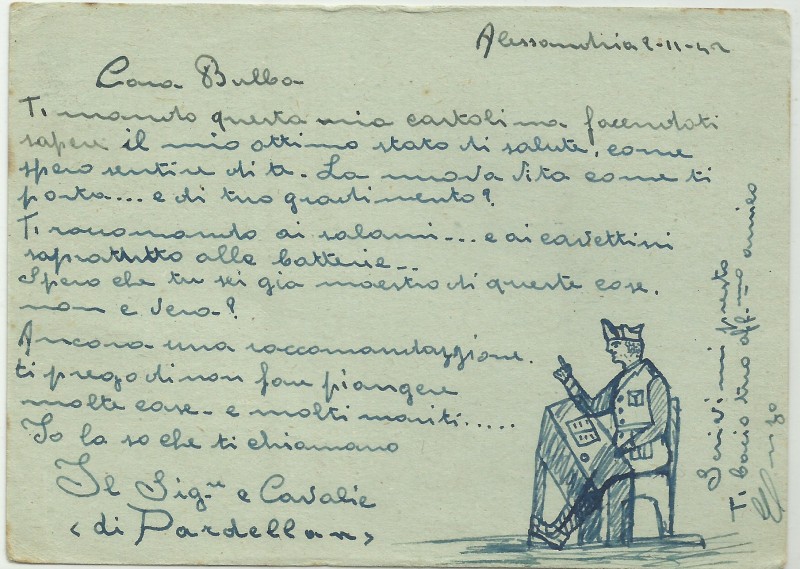 Alessandria 2-11-42
Cara Bulba
Ti mando questa mia cartolina facendoti
sapere il mio ottimo stato di salute, come
spero sentire di te. La nuova vita come ti
porta... e di tuo gradimento?
Ti raccomando ai salami... e ai cavettini
sopratutto alle batterie...
Spero che tu sei gia maestro di queste cose.
non e vero?
Ancora una raccomandazzione.
ti prego di non fare piangere
molte case - e molti mariti.....
Io la so che ti chiamano
Il Sig-re e Cavalie
<di Pardellan>
Scrivimi presto
Ti bacio tuo aff-mo amico